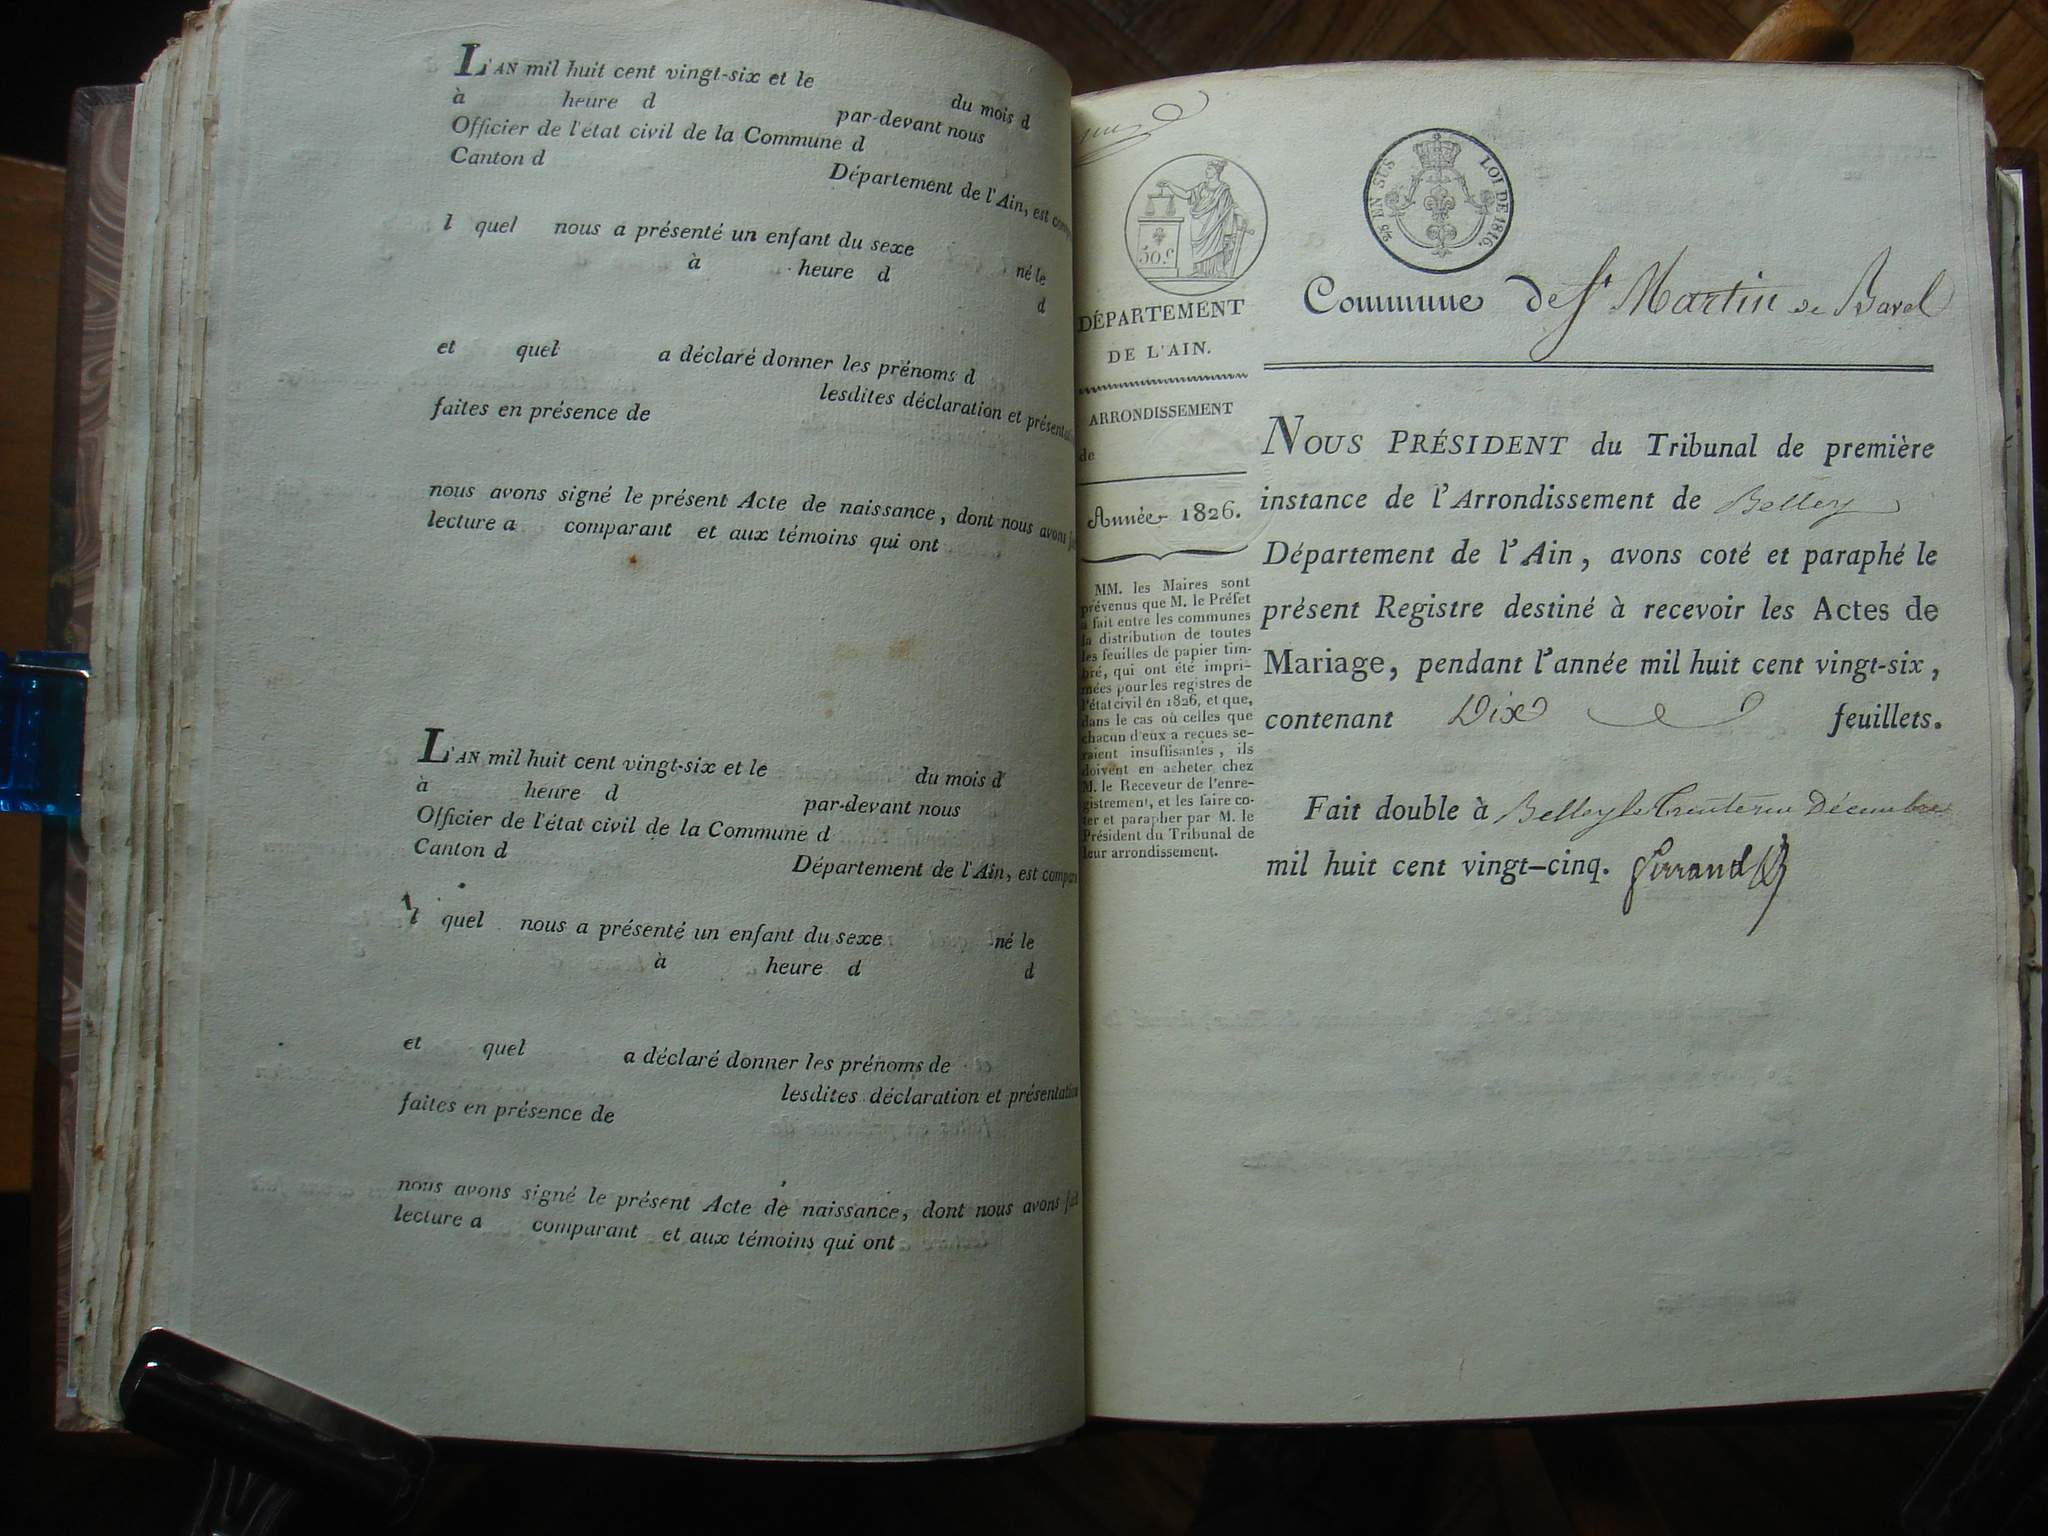 L'AN mil huit cent vingt-six et le du mois d
à heure d par-devant nous
Officier de l'état civil de la Commune d
Canton d Département de l'Ain, est
l quel nous a présenté un enfant du sexe né le
à heure d
d
et quel a déclaré donner les prénoms d
lesdites déclaration et
faites en présence de
nous avons signé le présent Acte de naissance, dont nous avons
lecture a comparant et aux témoins qui ont
L'AN mil huit cent vingt-six et le du mois d
à heure d par-devant nous
Officier de l'état civil de la Commune d
Canton d Département de l'Ain, est
l quel nous a présenté un enfant du sexe né le
à heure d d
et quel a déclaré donner les prénoms de
lesdites déclaration et présentation
faites en présence de
nous avons signé le présent Acte de naissance, dont nous avons
lecture a comparant et aux témoins qui ont
50.c
25 EN SUS LOI DE 1816.
DÉPARTEMENT
DE L'AIN.
ARRONDISSEMENT
de
Année 1826.
MM. les Maires sont
prévenus que M. le Préfet
a fait entre les communes
la distribution de toutes
les feuilles de papier tim-
bré, qui ont été impri-
mées pour les registres de
l'état civil en 1826, et que,
dans le cas où celles que
chacun d'eux a reçues se-
raient insuffisantes, ils
doivent en acheter chez
M. le Receveur de l'enre-
gistrement, et les faire co-
ter et parapher par M. le
Président du Tribunal de
leur arrondissement.
Commune de St Martin de Bavel
NOUS PRÉSIDENT du Tribunal de première
instance de l'Arrondissement de Belley
Département de l'Ain, avons coté et paraphé le
présent Registre destiné à recevoir les Actes de
Mariage, pendant l'année mil huit cent vingt-six,
contenant Dix feuillets.
Fait double à Belley le Trente un Décembre
mil huit cent vingt-cinq.